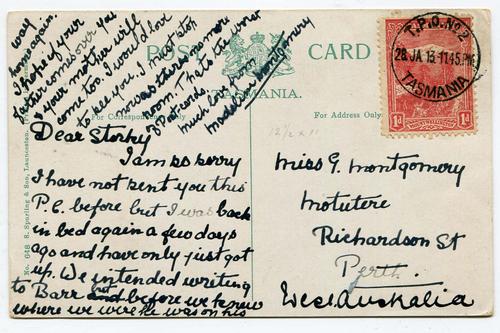 POST CARD
TASMANIA.
For Correspondence
For Address Only
T.P.O. No 2
28 JA 13 11 45 PM
TASMANIA
1d 1d
12½ x 11
Miss G. Montgomery
Motutere
Richardson St
Perth.
West Australia
Dear Storky
I am so sorry
I have not sent you this
P.C. before but I was back
in bed again a few days
ago and have only just got
up. We intended writing
to Barr but and before we knew
where we were he was on his
way
home again.
I hope if your
father comes over you
& your mother will
come too. I would love
to see you. I must stop
now as there is no more
room. That's the worst
of p.cards.
much love from
Montgomery
No. 648 S. Spurling & Son, Launceston.